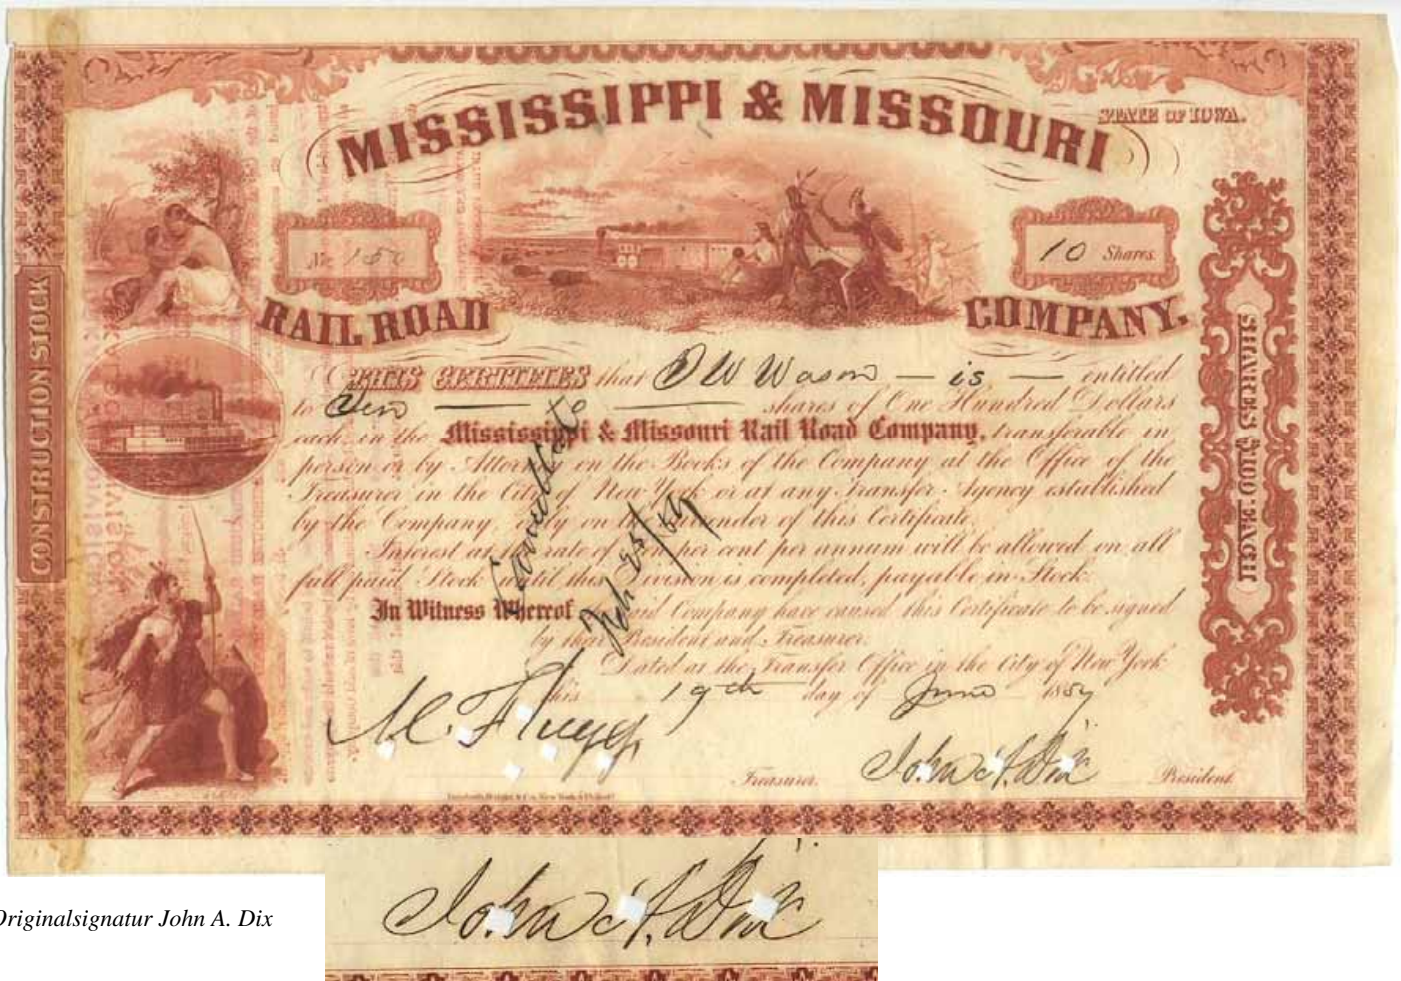 MISSISSIPPI & MISSOURI
STATE OF IOWA.
No. 150
10 Shares.
RAIL ROAD COMPANY.
CONSTRUCTION STOCK
SHARES $100 EACH
THIS CERTIFIES that D W Wason — is — entitled
to Ten shares of One Hundred Dollars
each in the Mississippi & Missouri Rail Road Company, transferable in
person or by Attorney on the Books of the Company at the Office of the
Treasurer in the City of New York or at any Transfer Agency established
by the Company, only on the surrender of this Certificate.
Interest at rate of Ten per cent per annum will be allowed on all
full paid Stock until this Division is completed, payable in Stock.
In Witness Whereof said Company have caused this Certificate to be signed
by their President and Treasurer.
Dated at the Transfer Office in the City of New York
this 19th day of June 185
Cancelled
Treasurer.
John A. Dix President.
John A. Dix
Originalsignatur John A. Dix